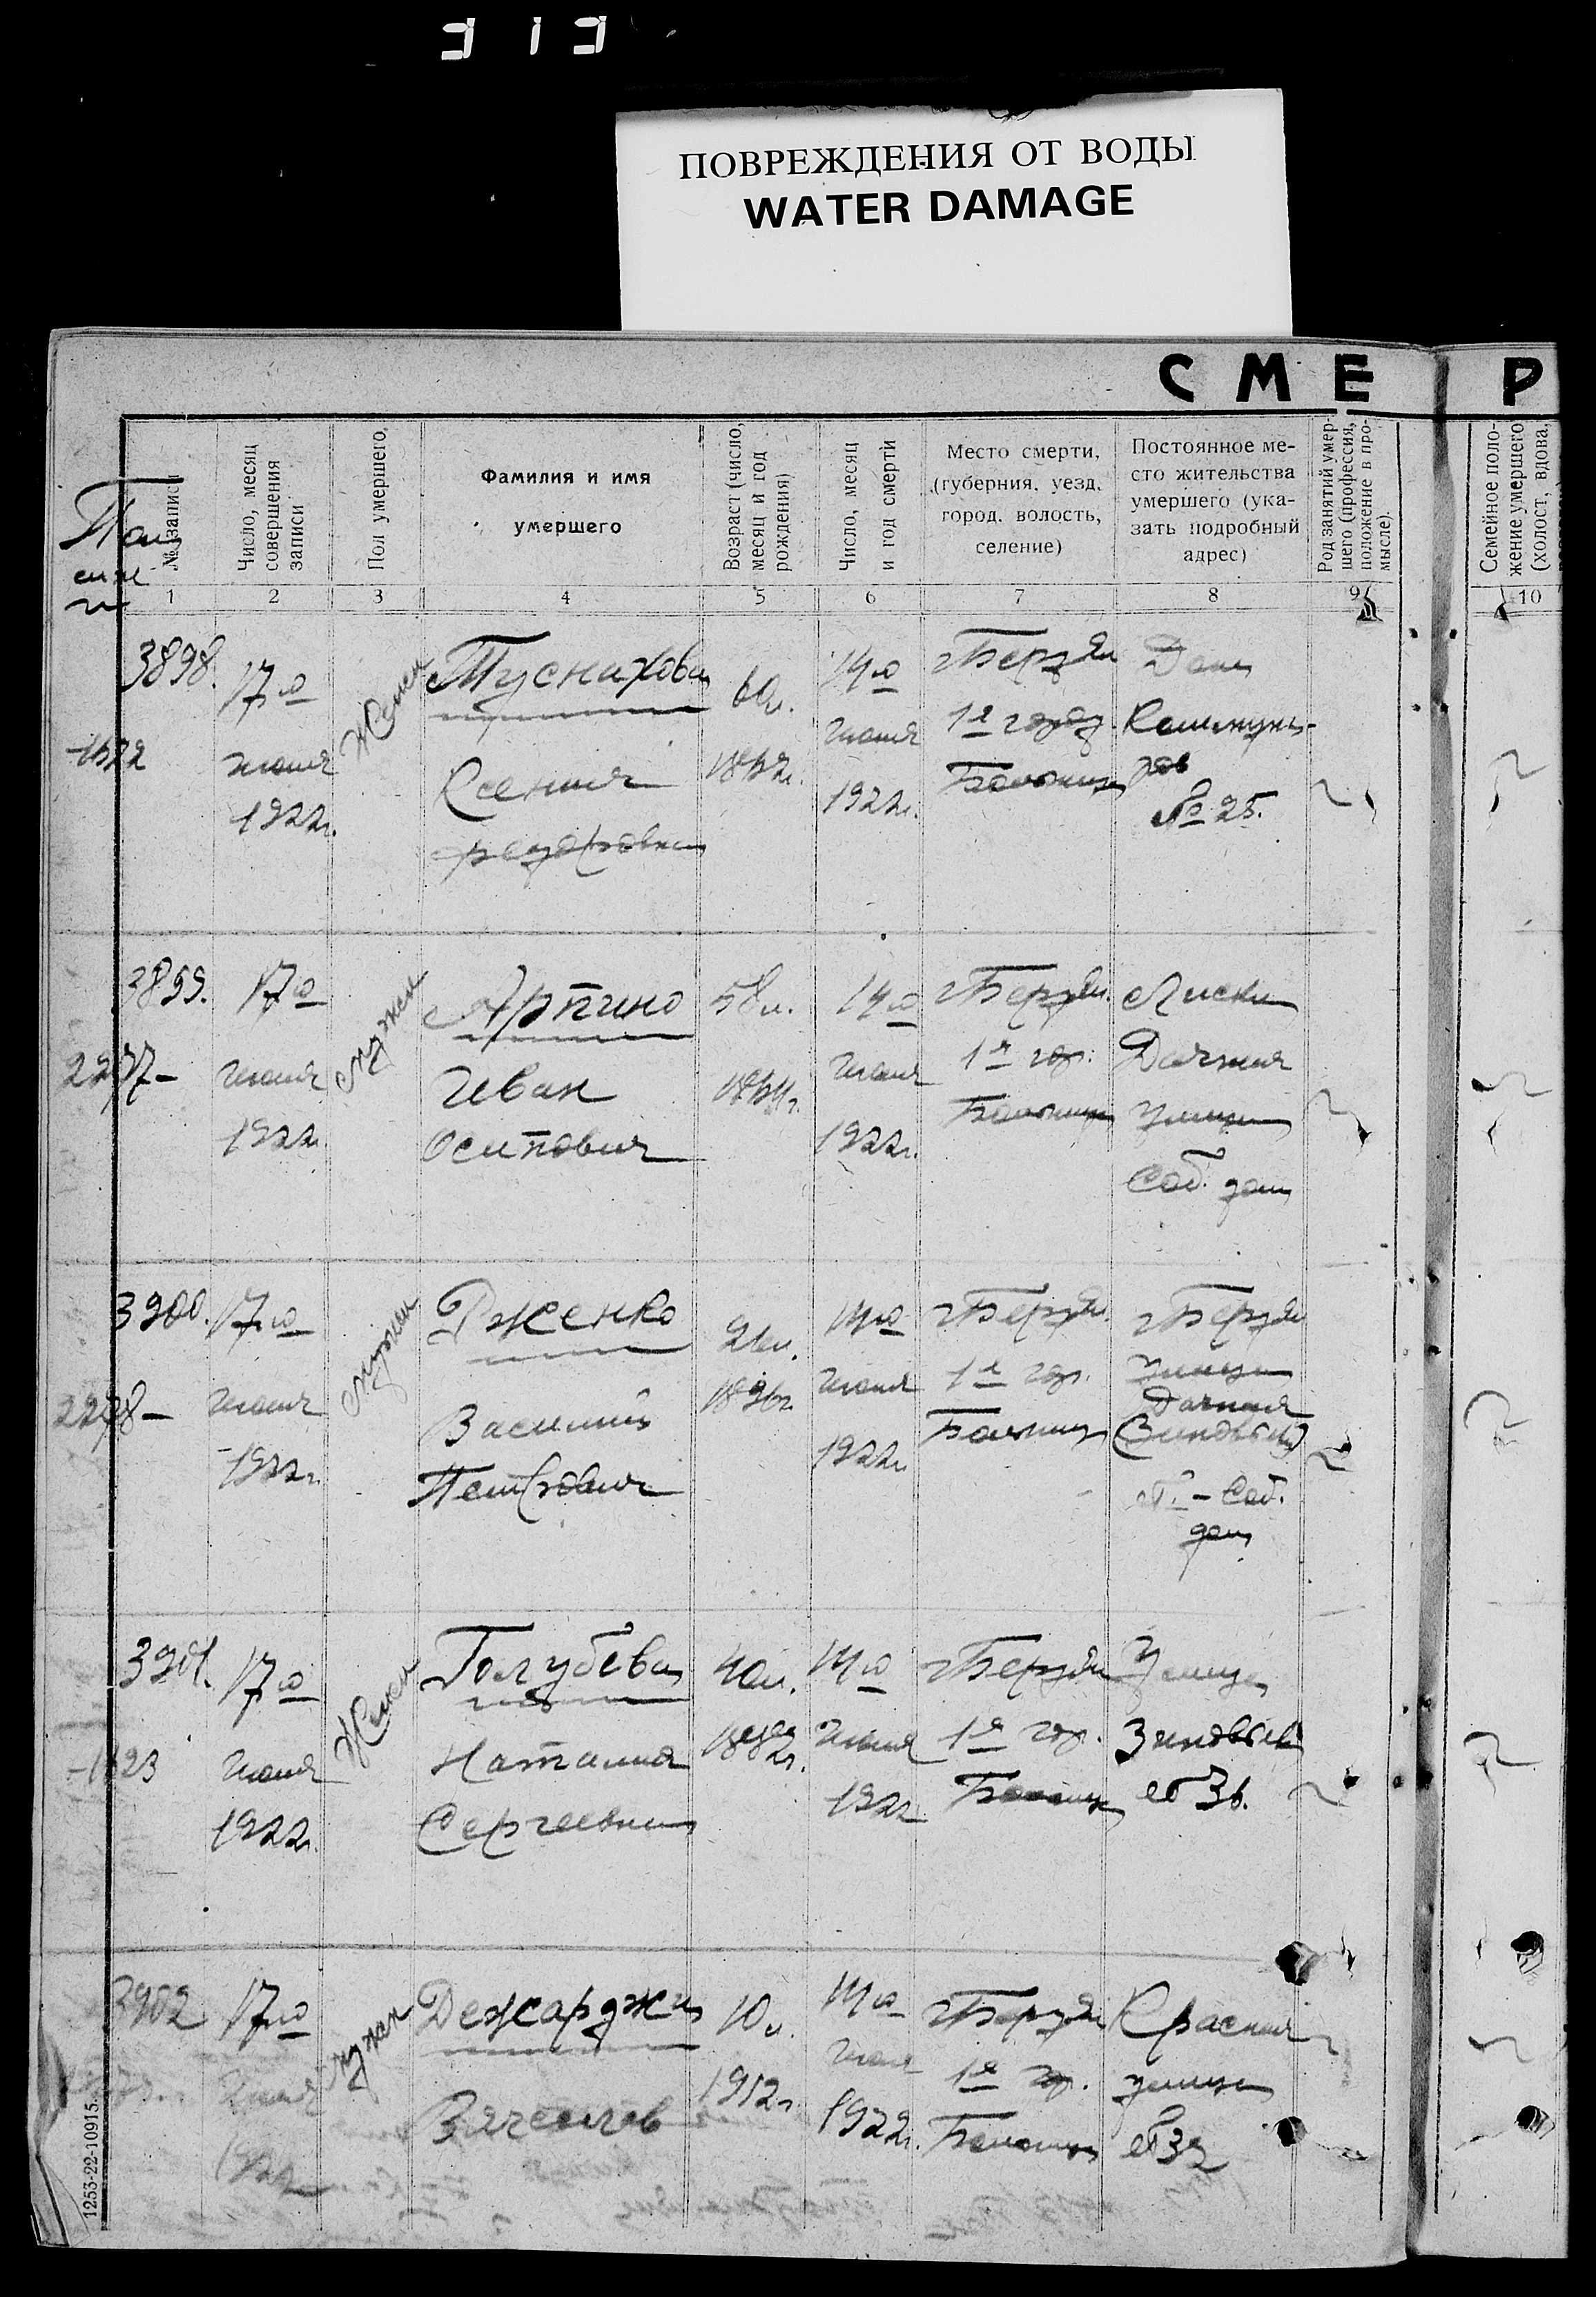 313
ПОВРЕЖДЕНИЯ ОТ ВОДЫ
WATER DAMAGE
С М Е Р
№ записи
Число, месяц
совершения
записи
Пол умершего,
Фамилия и имя
умершего
Возраст (число,
месяц и год
рождения)
Число, месяц
и год смерти
Место смерти,
(губерния, уезд,
город, волость,
селение)
Постоянное ме-
сто жительства
умершего (ука-
зать подробный
адрес)
Род занятий умер-
шего (профессия,
положение в про-
мысле).
Семейное поло-
жение умершего
(холост, вдова,
1 2 3 4 5 6 7 8 9 10
3898.
1622
17го
июня
1922г.
Женск
Туснахова
Ксения
60л.
1862г.
14го
июня
1922г.
г Бердян
1я город.
Больница
Дом
Коммуна-
ров
№ 25.
3899.
2277-
17го
июня
1922г.
Мужск
Артино
Иван
Осипович
58л.
1864г.
14го
июня
1922г.
г Бердян.
1я гор.
Больница
Лиски
Дачная
улица
Соб. дом
3900.
2278-
17го
июня
1922г.
Мужск
Рженко
Василий
Петрович
26л.
1896г.
14го
июня
1922г.
г Бердян.
1я гор.
Больница
г Бердян
улица
Дачная
Соб.
дом
3901.
-1623
17го
июня
1922г.
Женск
Голубева
Наталия
Сергеевна
40л.
1882г.
14го
июня
1922
г Бердян
1я гор.
Больница
Улица
Зиновьев
№ 36.
3902
17го
июня
1922
Мужск
Дежарджи
Вячеслав
10л.
1912г.
14го
июня
1922г.
г Бердян
1я гор.
Больница
Красная
улица
№ 32
1253-22-10915.